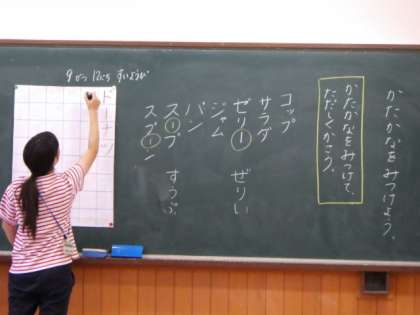 かたかなをみつけよう。
かたかなをみつけて、
ただしくかこう。
コップ
サラダ
ゼリー ぜりい
ジャム
パン
スープ すうぷ
スプーン
9がつ12にち すいようび
ドーナツ